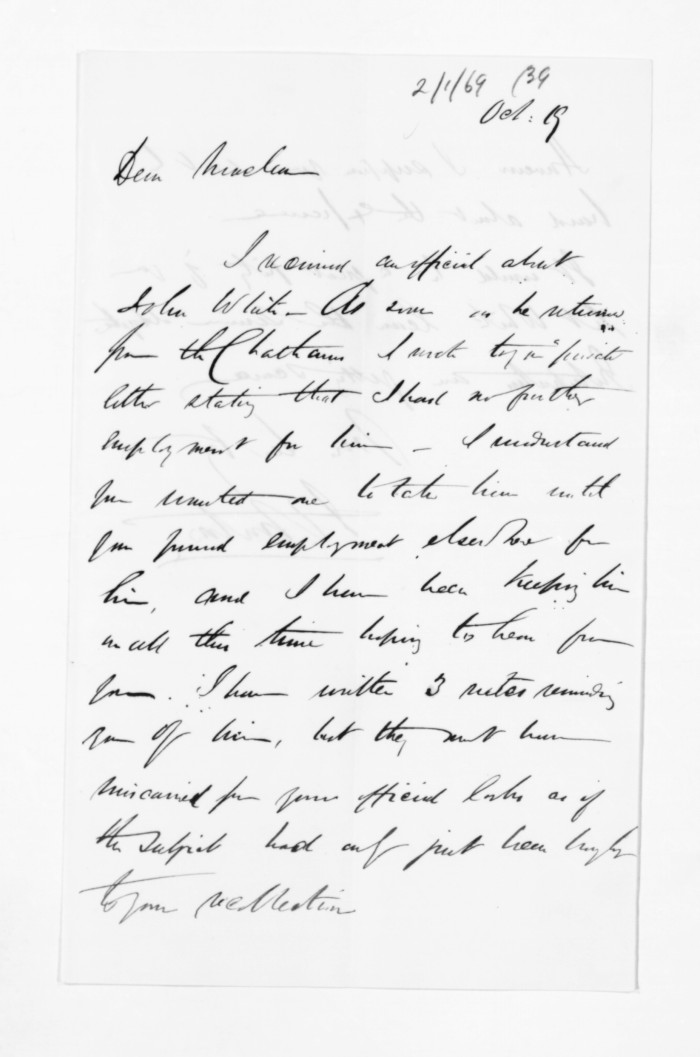 2/1/69 (39
Oct: 19
Dear Maclean
I received an official about
John White - As soon as he returned
from the Chathams I wrote to you a "private"
letter stating that I had no further
employment for him - I understand
you wanted me to take him until
you found employment elsewhere for
him, and I have been keeping him
on all this time hoping to hear from
you. I have written 3 notes reminding
you of him, but they must have
miscarried for your official looks as if
the subject had only just been brought
to your recollection